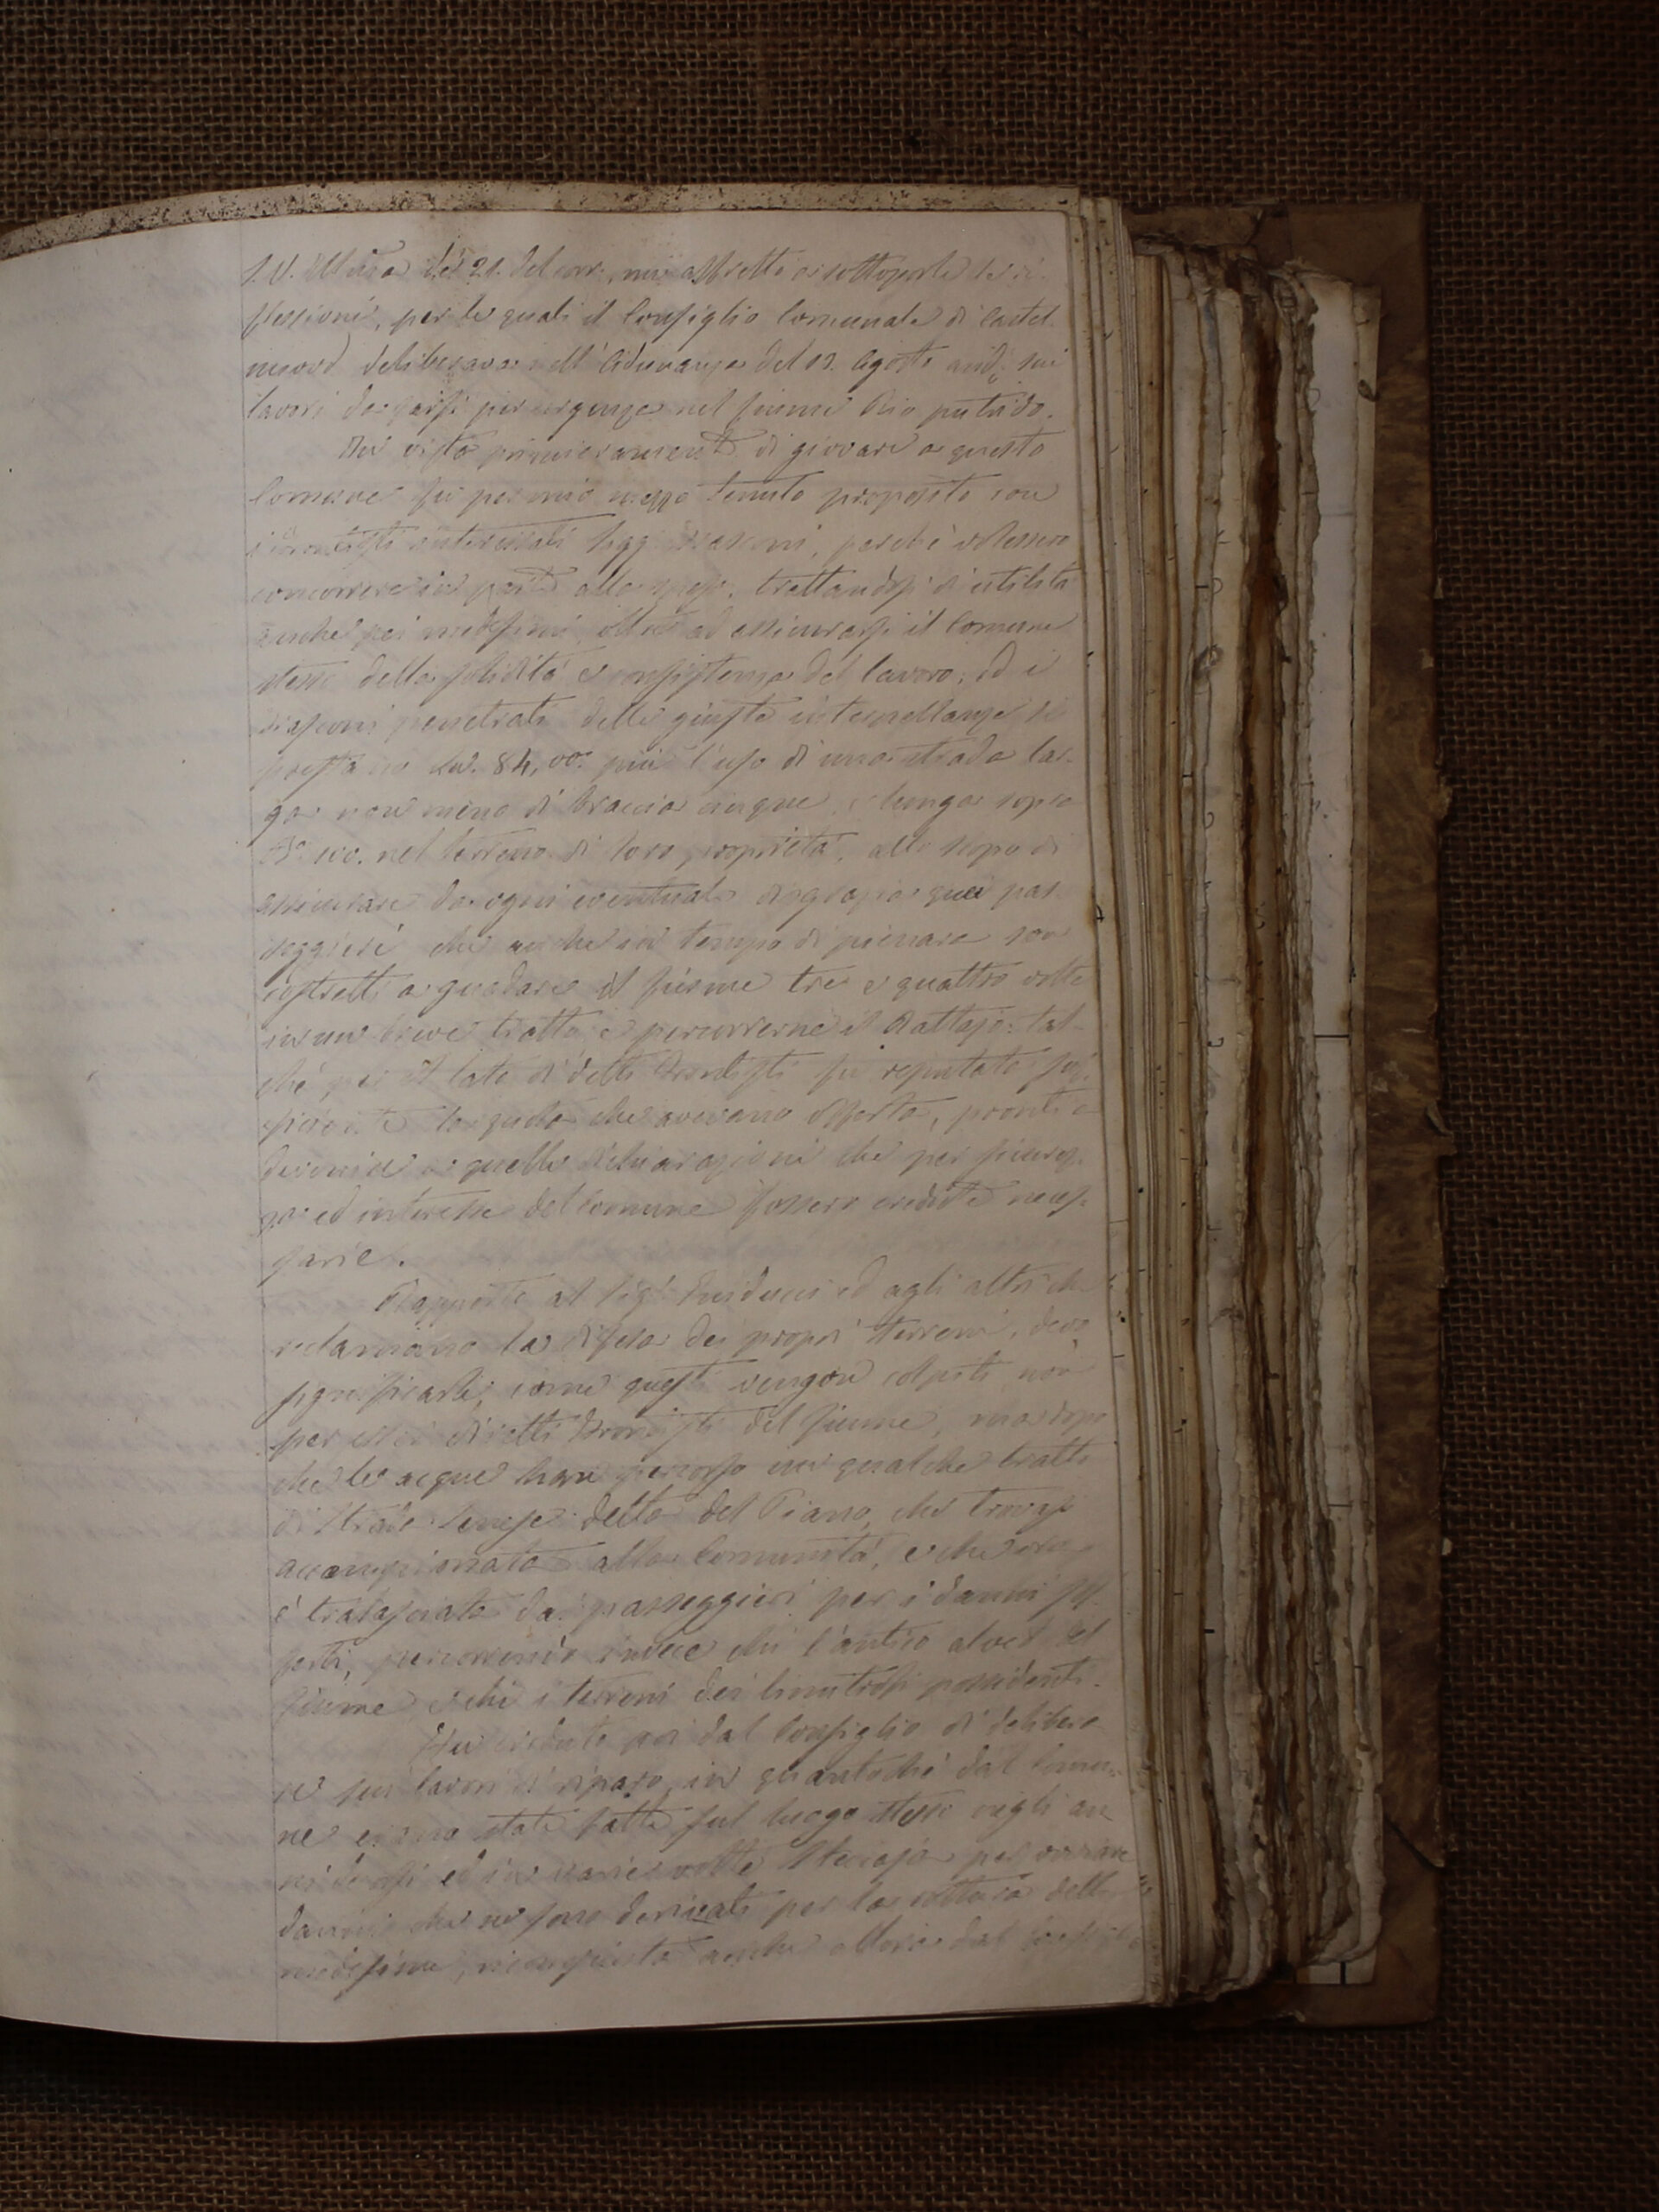 S. V. Ill.ma de' 21. del corr. mi affretto a sottoporle le ri-
flessioni, per le quali il Consiglio Comunale di Castel-
nuovo deliberava nell'Adunanza del 12. Agosto and.o sui
lavori da farsi per urgenza nel fiume Rio putrido.
In vista primieramente di giovare a questo
Comune fu per mio mezzo tenuto proposito con
i frontisti interessati Sigg. perchè volessero
concorrere in parte alla spesa, trattandosi di utilità
anche pei medesimi, oltre ad assicurarsi il Comune
stesso della solidità e consistenza del lavoro; ed i
penetrati delle giuste interpellanze si
prestano 84,00. più l'uso di una strada lar-
ga non meno di braccia cinque, e lunga sopra
nel terreno di loro proprietà, allo scopo di
assicurare da ogni eventuale disgrazia quei pas-
seggieri che anche in tempo di pienara son
costretti a guadare il fiume tre e quattro volte
in un breve tratto e percorrerne il tal-
chè per il lato di detti frontisti fu reputato suf-
ficiente la quota che avevano offerta, pronti a
devenire a quelle dichiarazioni che per sicurez-
za ed interesse del Comune fossero credute neces-
sarie.
Rapporto al Sig.r ed agli altri che
reclamano la difesa dei propri terreni, devo
significarle, come questi vengon colpiti non
per esser diretti frontisti del fiume, ma dopo
che le acque han percorso un qualche tratto
di strada detta del Piano, che trovasi
accampionata alla Comunità, e che ora
è tralasciata dai passeggieri per i danni sof-
ferti, percorrendo invece chi l'antico alveo del
fiume e chi i terreni dei limitrofi possidenti.
Fu creduto poi dal Consiglio di delibera-
re sui lavori di riparo, in quantochè dal Comu-
ne erano state fatte sul luogo stesso negli an-
ni decorsi ed in varie volte Steccaje per ovviare
danni che ne sono derivati per la rottura delle
medesime, anche allora dal Consiglio